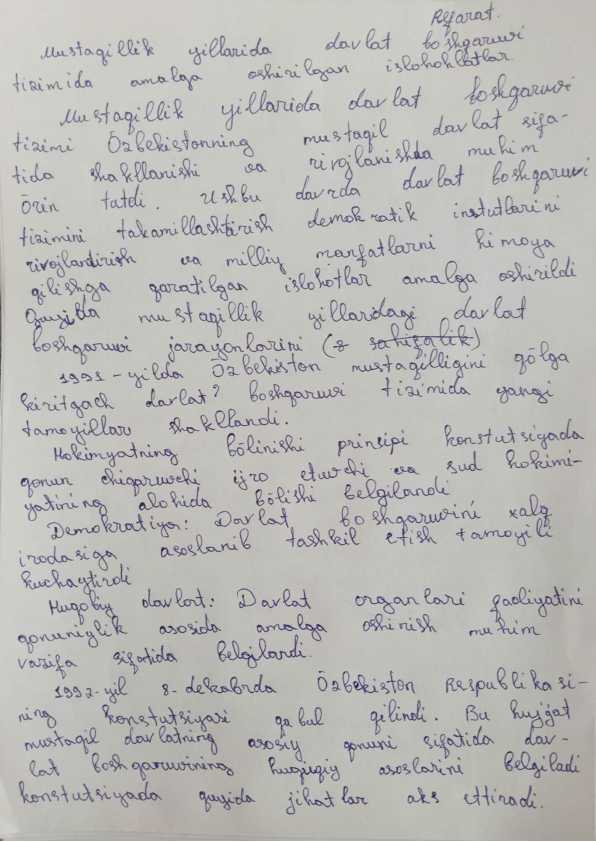 Referat.
Mustaqillik yillarida davlat boshqaruvi
tizimida amalga oshirilgan islohohlatlar
Mustaqillik yillarida davlat boshqaruvi
tizimi Özbekistonning mustaqil davlat sifa-
tida shakllanishi va rivojlanishda muhim
örin tatdi. Ushbu davrda davlat boshqaruvi
tizimini takamillashtirish demokratik institutlarini
rivojlantirish va milliy manfatlarni himoya
qilishga qaratilgan islohotlar amalga oshirildi
Quyida mustaqillik yillardagi davlat
boshqaruvi jarayonlarini (8 sahifalik)
1991-yilda Özbekiston mustaqilligini qölga
kiritgach davlat? boshqaruvi tizimida yangi
tamoyillar shakllandi.
Hokimyatning bölinishi prinsipi konstutsiyada
qonun chiqaruvchi ijro etuvchi va sud hokimi-
yatining alohida bölishi belgilandi
Demokratiya: Davlat boshqaruvini xalq
irodasiga asoslanib tashkil etish tamoyili
kuchaytirdi
Huqobiy davlort: Davlat organlari faoliyatini
qonuniylik asosida amalga oshirish muhim
vazifa sifatida belgilandi.
1992-yil 8-dekabrda Özbekiston Respublikasi-
ning konstutsiyasi qabul qilindi. Bu hujjat
mustaqil davlatning asosiy qonuni sifatida dav-
lat boshqaruvining huquqiy asoslarini belgiladi
konstutsiyada quyida jihatlar aks ettiradi.